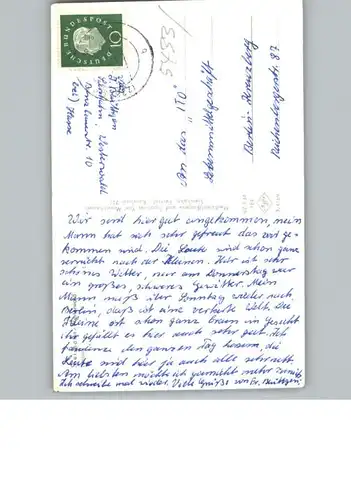 DEUTSCHE BUNDESPOST
10
3575
An das "ITO"
Lebensmittelgeschäft
Berlin-Kreuzberg
Reichenbergerstr. 87
Westerwald
10
bei Hasse
Wir sind hier gut angekommen, mein
Mann hat sich sehr gefreut das wir ge-
kommen sind. Die Leute sind schon ganz
verrückt nach der Kleinen. Hier ist sehr
schönes Wetter, nur am Donnerstag war
ein großes, schweres Gewitter. Mein
Mann muß über Sonntag wieder nach
Berlin, das ist eine verkehrte Welt. Die
Kleine ist schon ganz braun im Gesicht
ihr gefällt es hier auch sehr gut. Ich
den ganzen Tag die
Leute sind hier ja auch alle sehr nett.
Am liebsten möchte ich garnicht mehr zurück.
Ich schreibe mal wieder. Viele Grüße von Fr.